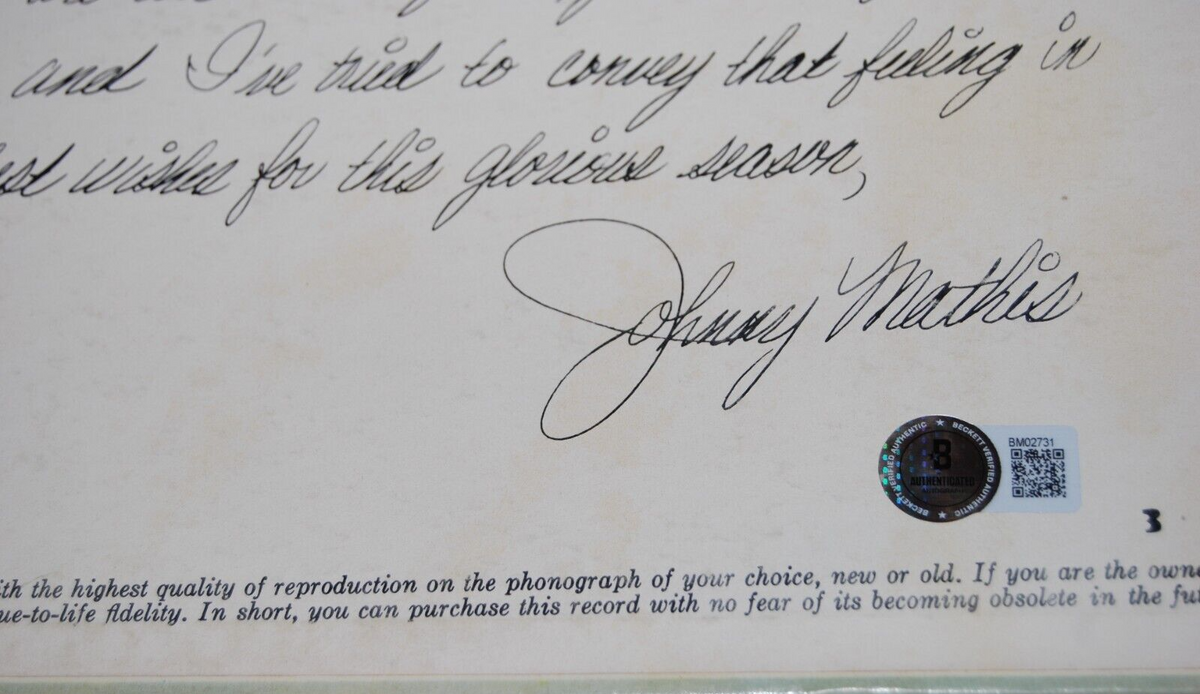 and I've tried to convey that feeling in
est wishes for this glorious season,
Johnny Mathis
BM02731
BECKETT VERIFIED AUTHENTIC ★ BECKETT VERIFIED AUTHENTIC ★
B
AUTHENTICATED
3
ith the highest quality of reproduction on the phonograph of your choice, new or old. If you are the owne
ue-to-life fidelity. In short, you can purchase this record with no fear of its becoming obsolete in the fut